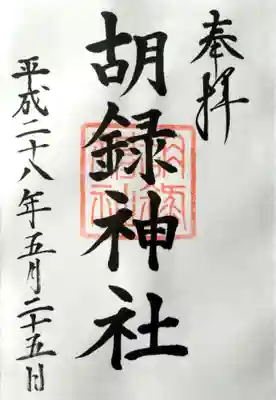 奉拝
胡録神社
平成二十八年五月二十五日